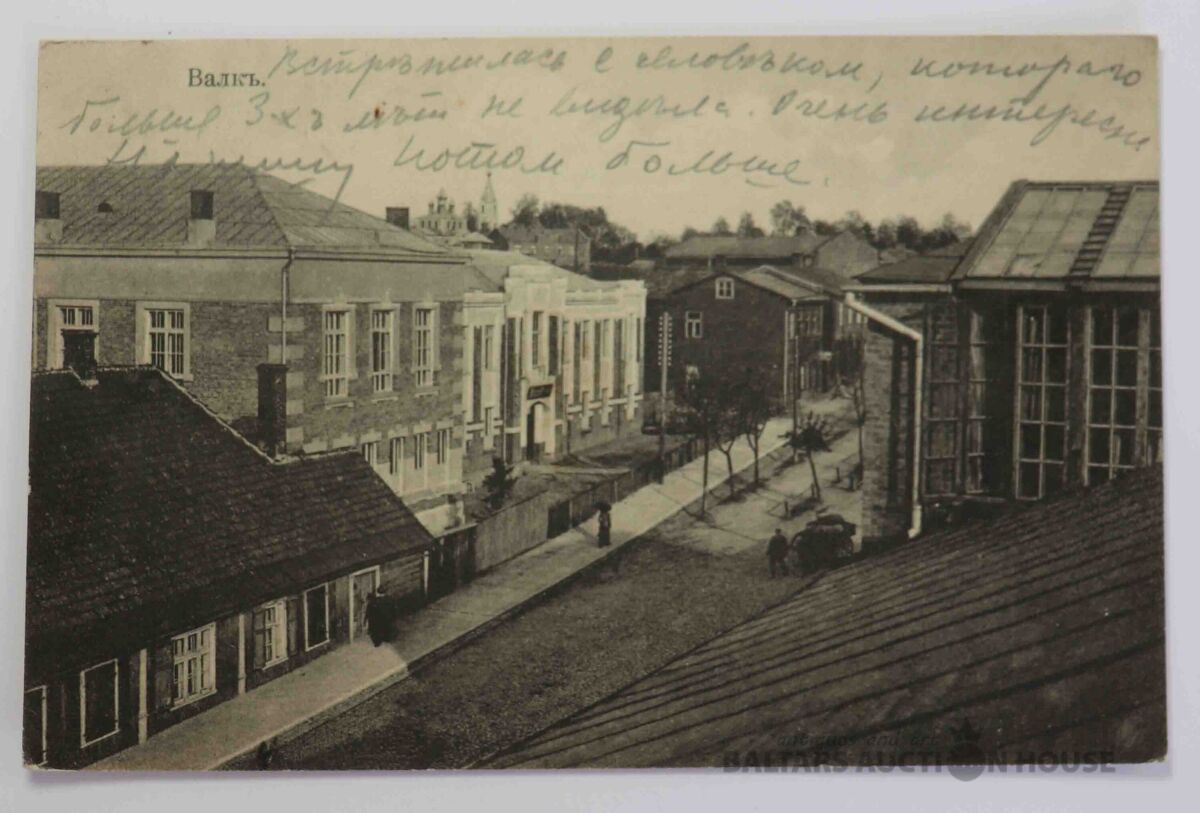 Валкъ.
Встрѣтилась с человѣком, котораго
больше 3-хъ лѣт не видѣла. Очень интересно
Напишу потом больше.
antiques and art
BALTARS AUCTION HOUSE